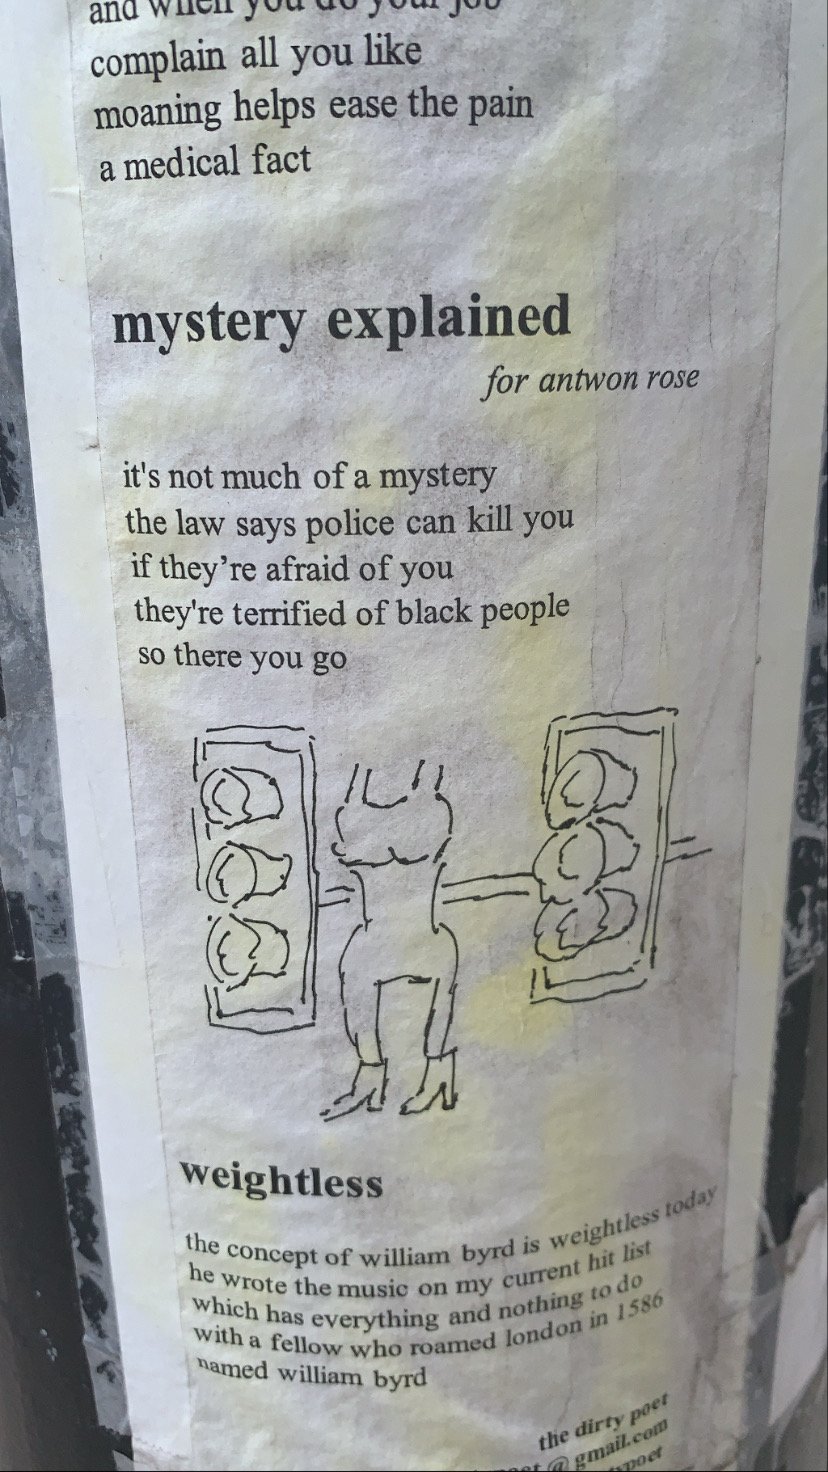 and when you do your job
complain all you like
moaning helps ease the pain
a medical fact
mystery explained
for antwon rose
it's not much of a mystery
the law says police can kill you
if they’re afraid of you
they're terrified of black people
so there you go
weightless
the concept of william byrd is weightless today
he wrote the music on my current hit list
which has everything and nothing to do
with a fellow who roamed london in 1586
named william byrd
the dirty poet
@ gmail.com